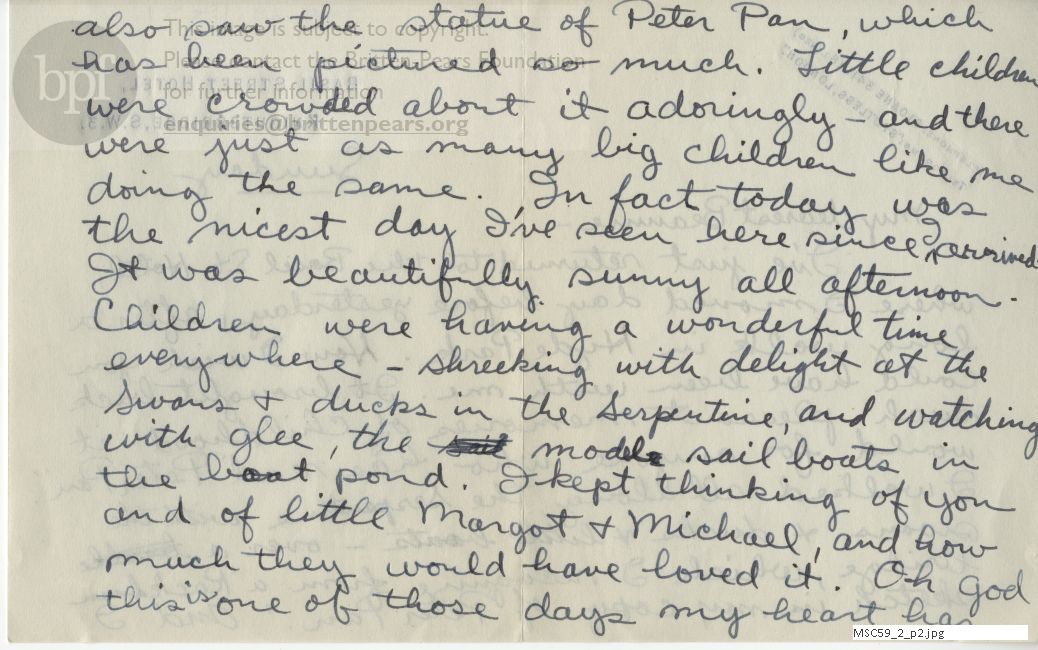 also saw the statue of Peter Pan, which
has been pictured so much. Little children
were crowded about it adoringly - and there
were just as many big children like me
doing the same. In fact today was
the nicest day I've seen here since I arrived.
It was beautifully sunny all afternoon.
Children were having a wonderful time
everywhere - shreeking with delight at the
swans & ducks in the Serpentine, and watching
with glee, the sail model sail boats in
the boat pond. I kept thinking of you
and of little Margot & Michael, and how
much they would have loved it. Oh God
this is one of those days my heart has
bpf
This image is subject to copyright.
Please contact the Britten-Pears Foundation
for further information
enquiries@brittenpears.org
MSC59_2_p2.jpg